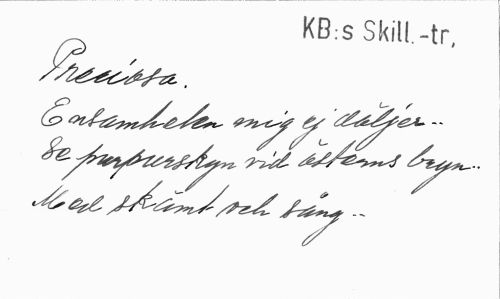 KB:s Skill.-tr,
Preciosa.
Ensamheten mig ej döljer..
Se purpurskyn vid österns bryn..
Med skämt och sång..